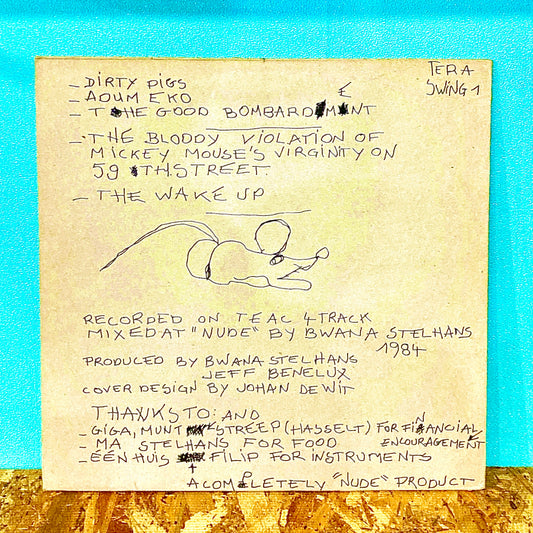 TERA
SWING 1
- DIRTY PIGS
- ADUM EKO
- THE GOOD BOMBARDMENT
- THE BLOODY VIOLATION OF
MICKEY MOUSE'S VIRGINITY ON
59 TH. STREET.
- THE WAKE UP
RECORDED ON TEAC 4TRACK
MIXED AT "NUDE" BY BWANA STELHANS
1984
PRODUCED BY BWANA STELHANS
JEFF BENELUX
COVER DESIGN BY JOHAN DE WIT
THANKS TO: AND
- GIGA, MUNT STREEP (HASSELT) FOR FINANCIAL
ENCOURAGEMENT
- MA STELHANS FOR FOOD
- EÉN HUIS FILIP FOR INSTRUMENTS
A COMPLETELY "NUDE" PRODUCT